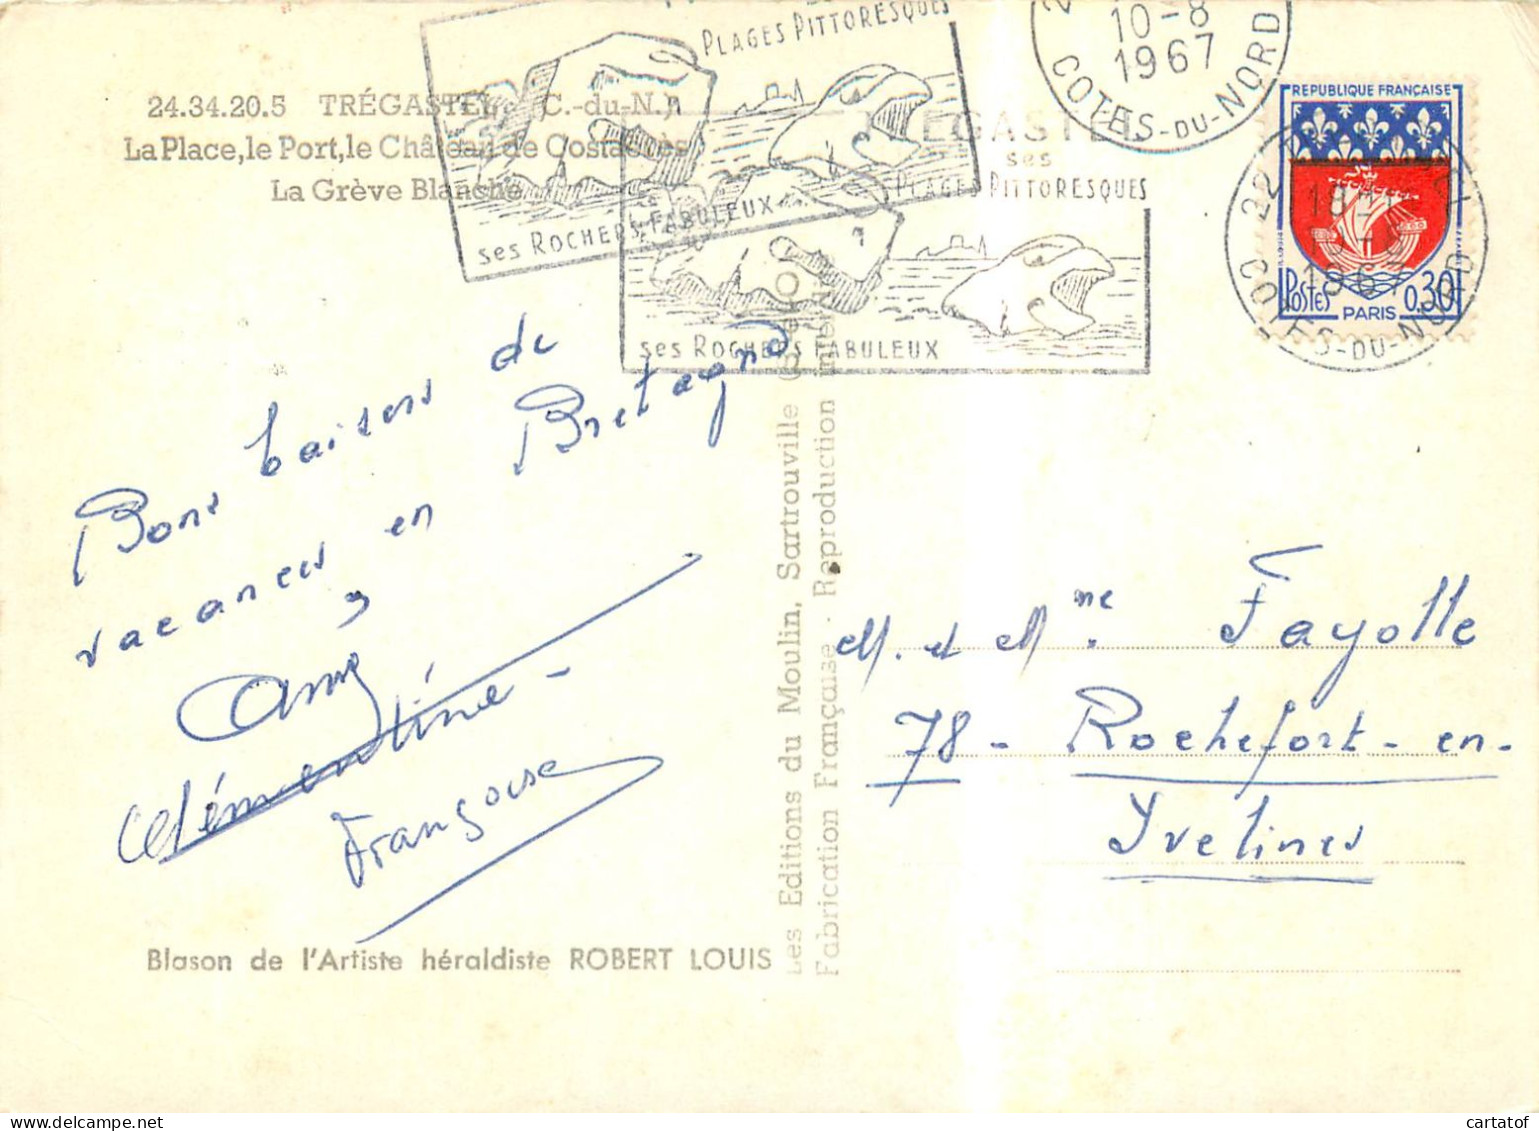 24.34.20.5 TRÉGASTEL (C.-du-N.)
La Place, le Port, le Château de Costaérès
La Grève Blanche
PLAGES PITTORESQUES
ses ROCHERS FABULEUX
10-8
1967
COTES-DU-NORD
TRÉGASTEL
ses
PLAGES PITTORESQUES
ses ROCHERS FABULEUX
REPUBLIQUE FRANÇAISE
POSTES PARIS 0,30
22
18 H
10-8
1967
COTES-DU-NORD
Bons baisers de
vacances en Bretagne
Clémentine
Françoise
Blason de l'Artiste héraldiste ROBERT LOUIS
Les Editions du Moulin, Sartrouville
Fabrication Française - Reproduction interdite
M. et Mme Fayolle
78 - Rochefort-en-
Yvelines
cartatof